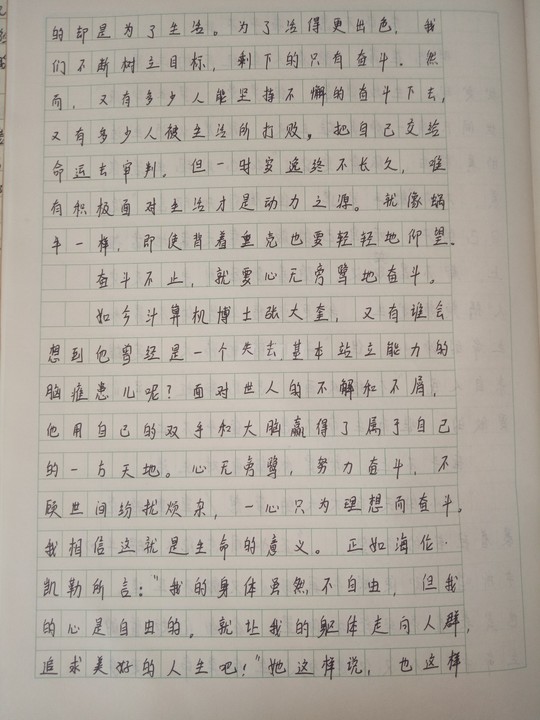 的却是为了生活。为了活得更出色，我
们不断树立目标，剩下的只有奋斗。然
而，又有多少人能坚持不懈的奋斗下去，
又有多少人被生活所打败。把自己交给
命运去审判，但一时安逸终不长久，唯
有积极面对生活才是动力之源。就像蜗
牛一样，即使背着重壳也要轻轻地仰望。
奋斗不止，就要心无旁骛地奋斗。
如今计算机博士张大奎，又有谁会
想到他曾经是一个失去基本站立能力的
脑瘫患儿呢？面对世人的不解和不屑，
他用自己的双手和大脑赢得了属于自己
的一方天地。心无旁骛，努力奋斗，不
顾世间纷扰烦杂，一心只为理想而奋斗。
我相信这就是生命的意义。正如海伦·
凯勒所言：“我的身体虽然不自由，但我
的心是自由的。就让我的躯体走向人群，
追求美好的人生吧！”她这样说，也这样